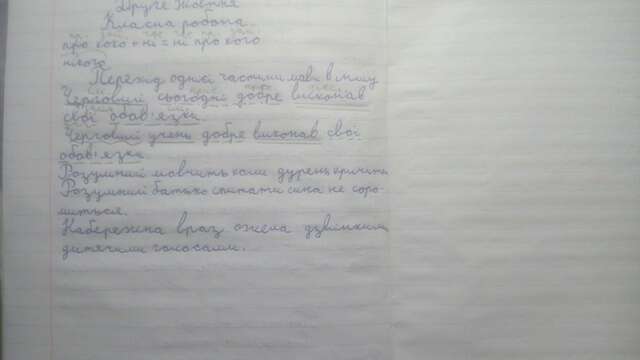 Друге жовтня
Класна робота.
про кого + ні = ні про кого
нікого
Перехід однієї частини мови в іншу
Черговий сьогодні добре виконав
свої обов'язки.
Черговий учень добре виконав свої
обов'язки.
Розумний мовчить коли дурень кричить
Розумний батько спитати сина не соро-
миться.
Набережна враз ожела дзвінкими
дитячими голосами.